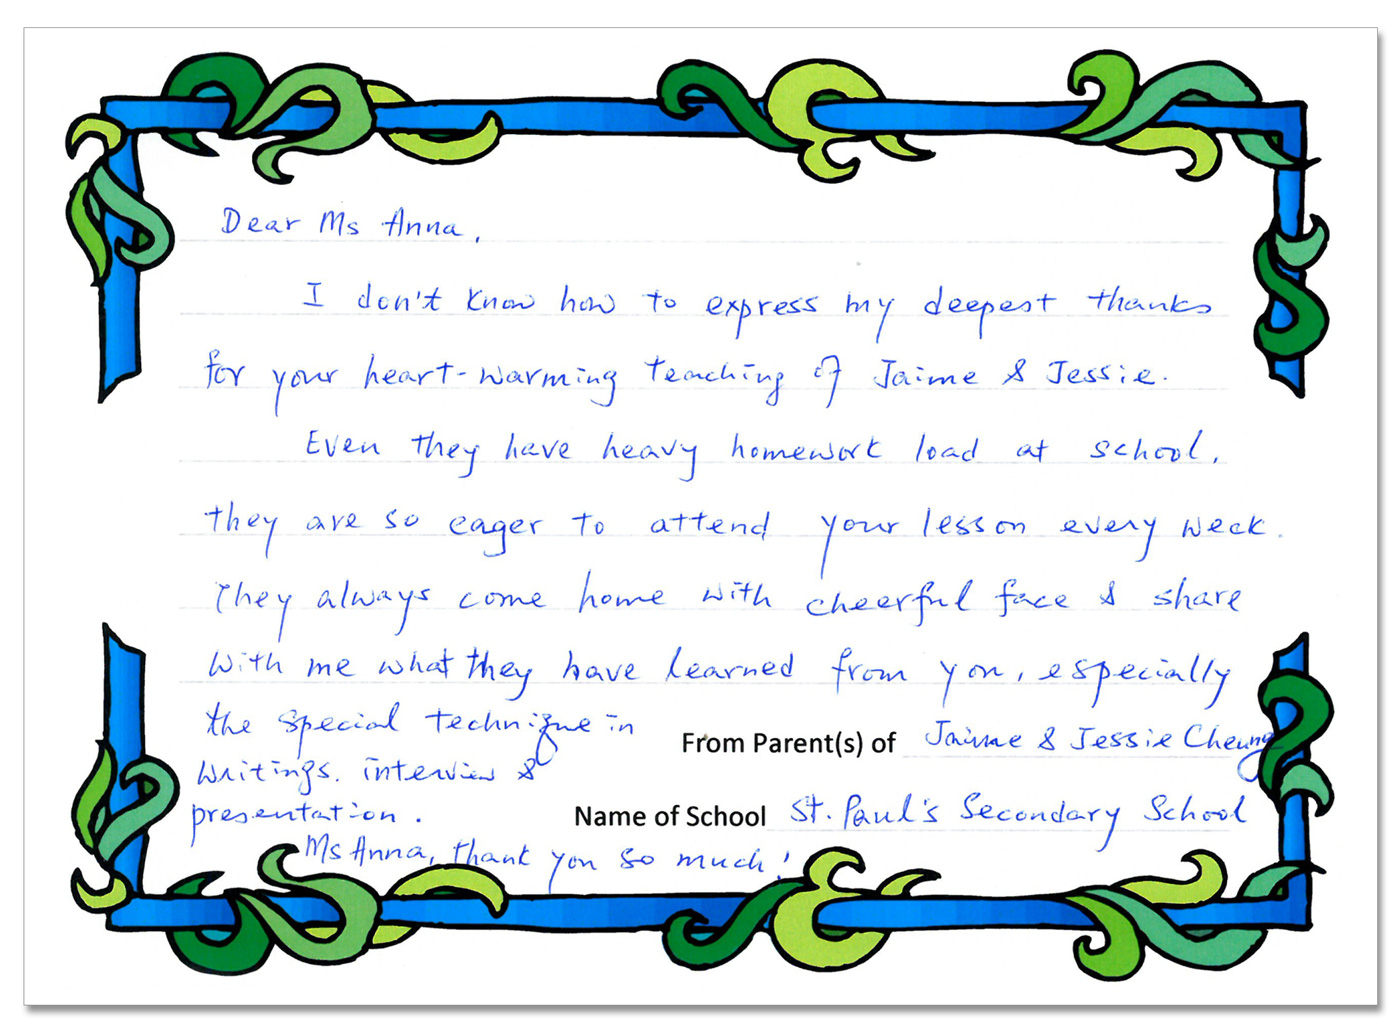 Dear Ms Anna,
I don't know how to express my deepest thanks
for your heart-warming teaching of Jaime & Jessie.
Even they have heavy homework load at school,
they are so eager to attend your lesson every week.
They always come home with cheerful face & share
with me what they have learned from you, especially
the special technique in
writings. interview &
presentation.
Ms Anna, thank you so much!
From Parent(s) of Jaime & Jessie Cheung
Name of School St. Paul's Secondary School